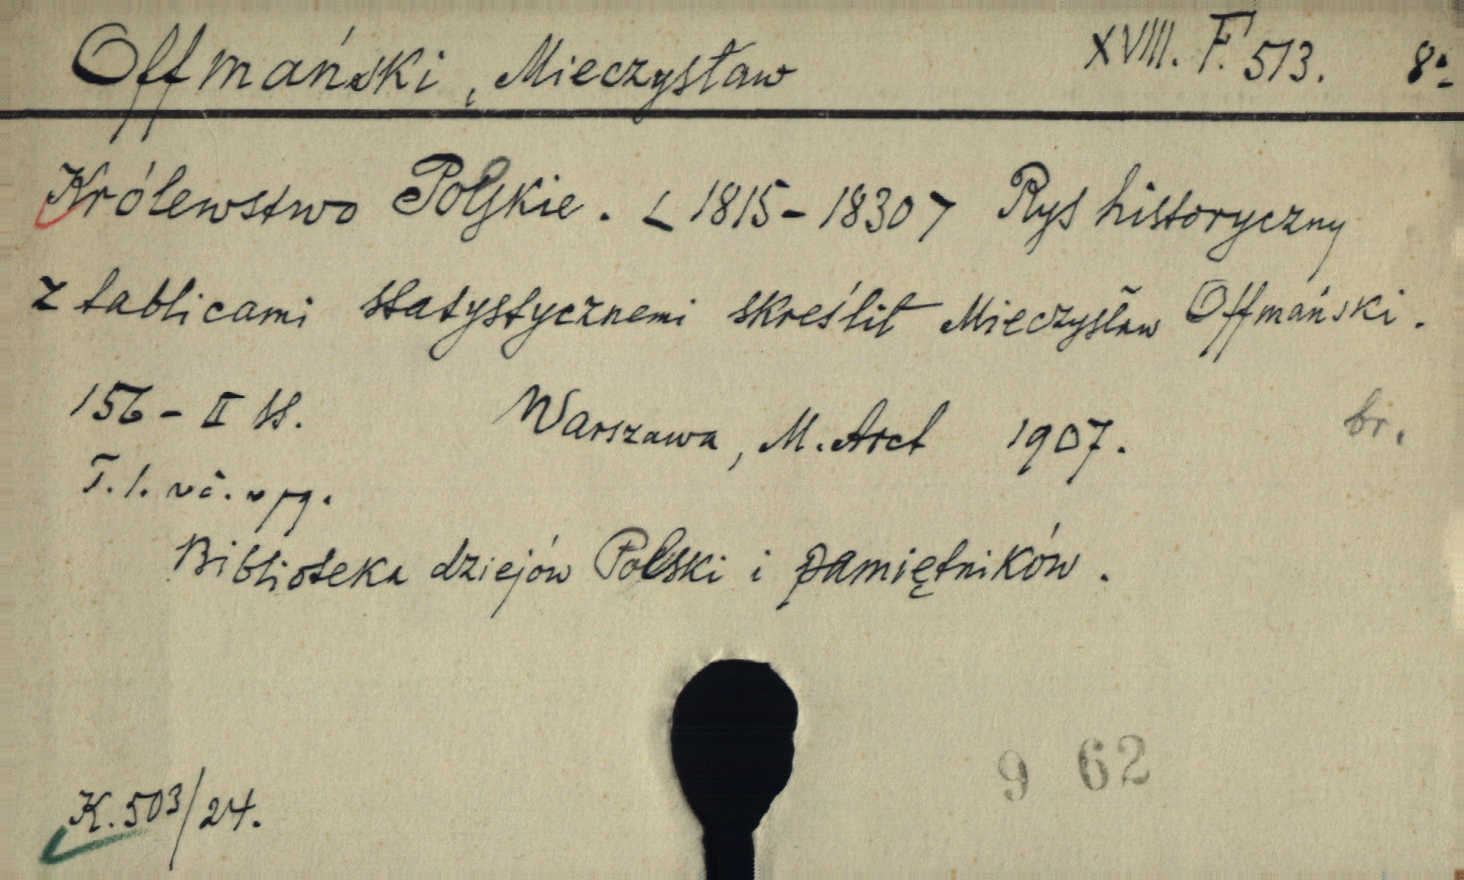 Offmański, Mieczysław XVIII. F. 513. 8°
Królewstwo Polskie. <1815-1830> Rys historyczny
z tablicami statystycznemi skreślił Mieczysław Offmański.
156 - II ss. Warszawa, M. Arct 1907. br.
T. l. vč. v pg.
Biblioteka dziejów Polski i pamiętników.
9 62
K. 503/24.